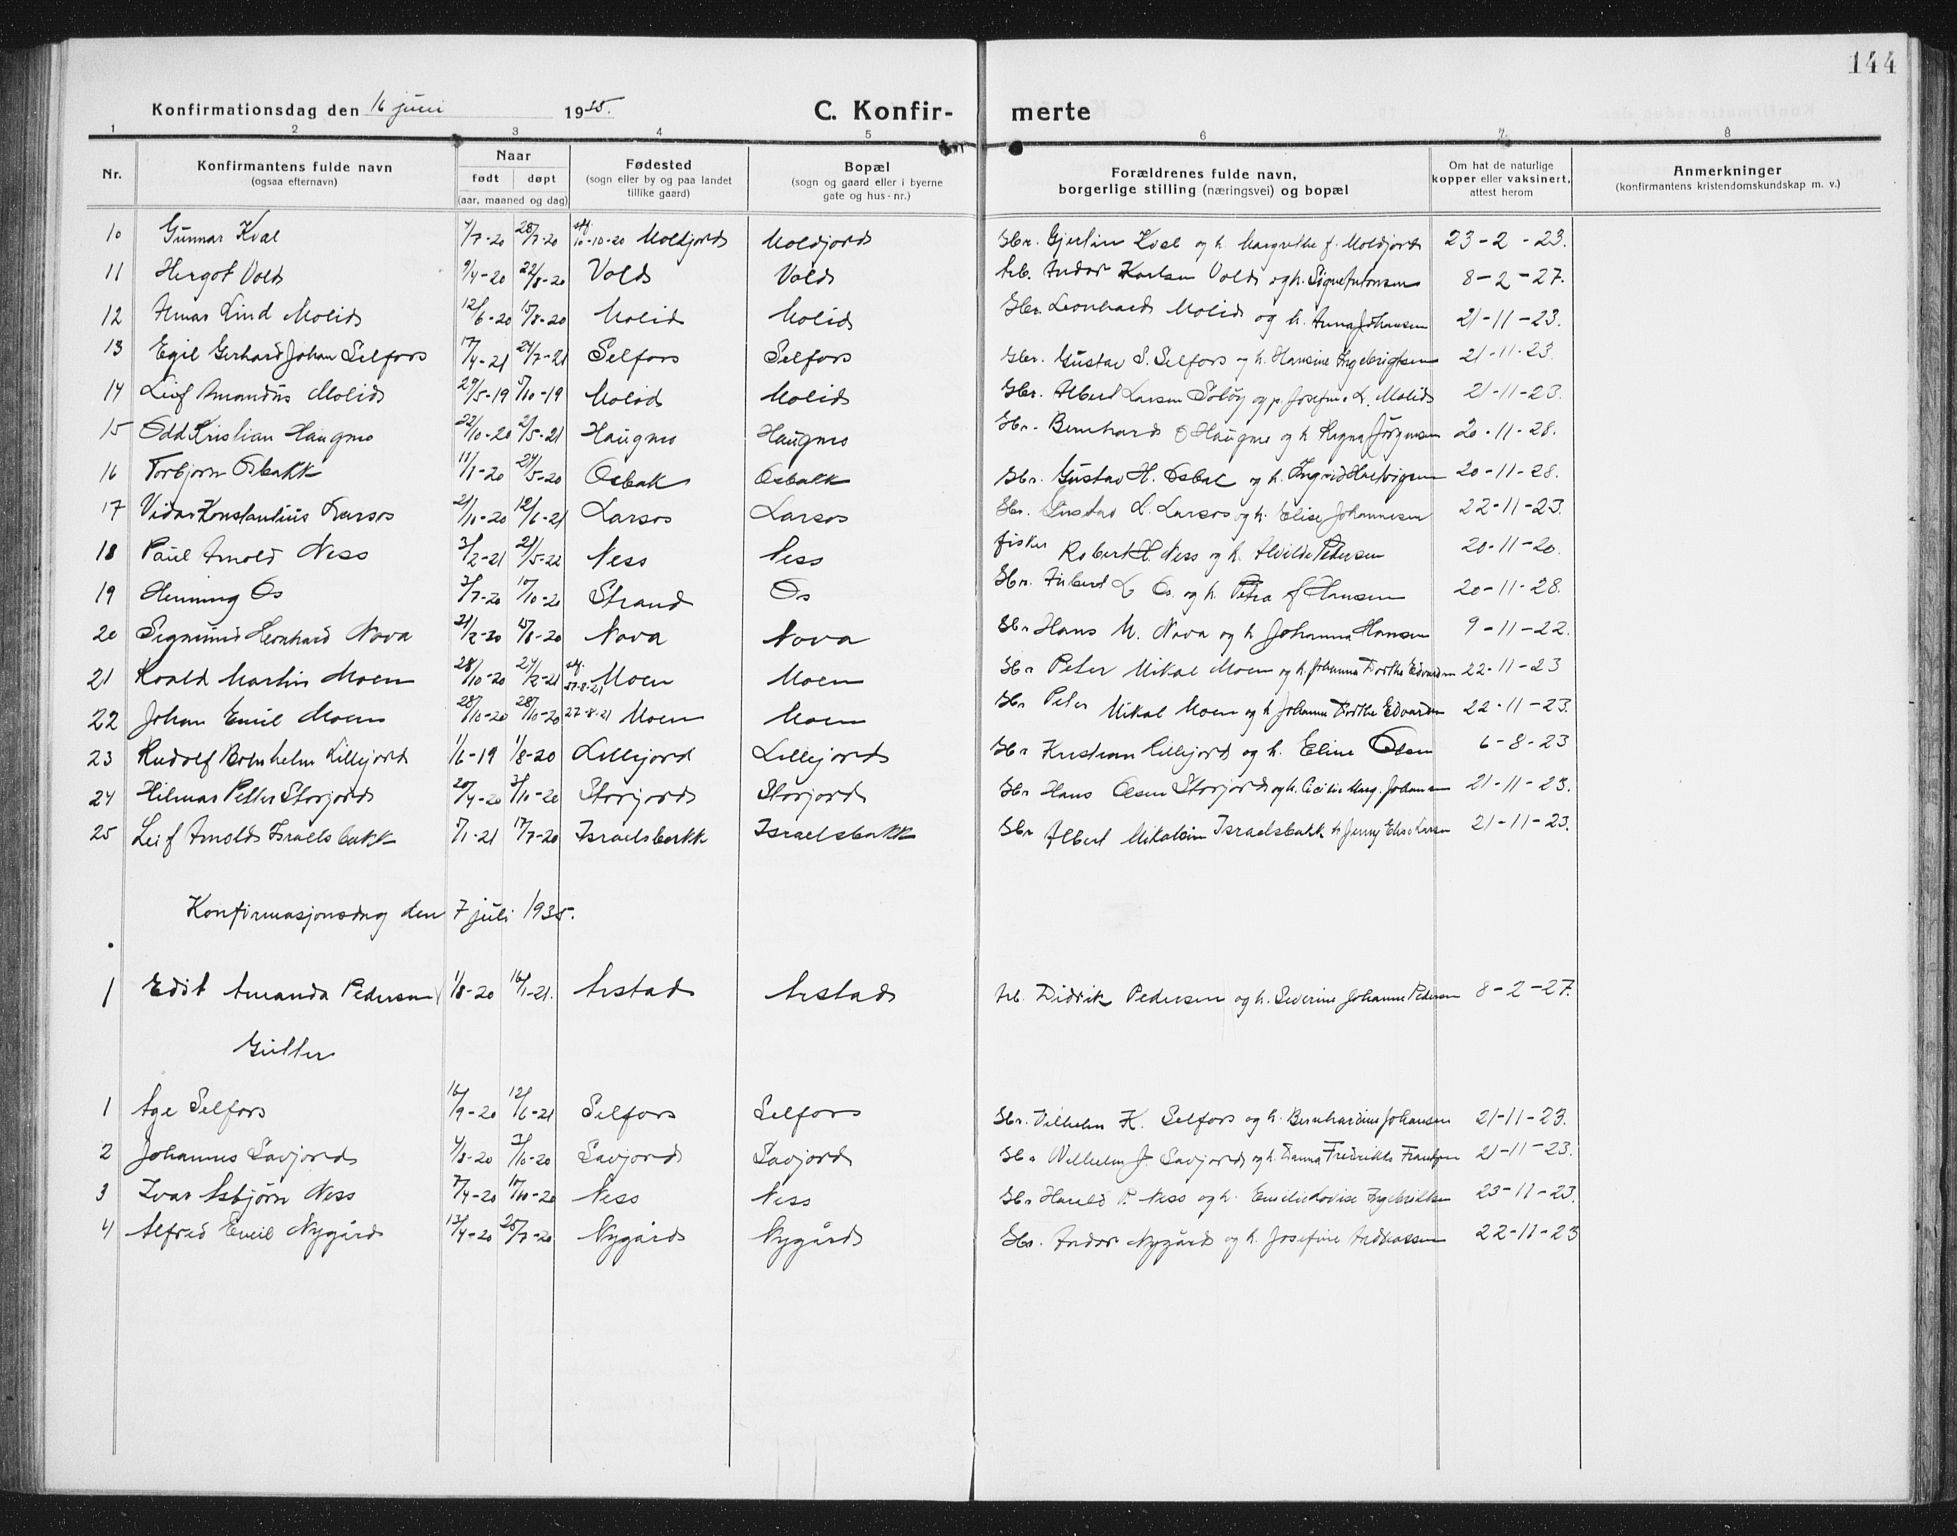 144
Konfirmationsdag den 16 juni 1935.
C. Konfir- merte
1 2 3 4 5 6 7 8
Nr. Konfirmantens fulde navn (ogsaa efternavn) Naar født døpt (aar, maaned og dag) Fødested (sogn eller by og paa landet tillike gaard) Bopæl (sogn og gaard eller i byerne gate og hus-nr.) Forældrenes fulde navn, borgerlige stilling (næringsvei) og bopæl Om hat de naturlige kopper eller vaksinert, attest herom Anmerkninger (konfirmantens kristendomskundskap m. v.)
10 Gunnar Kval 4/7-20 28/7-20 10-10-20 Moldjord Moldjord Gbr. Gjertin Kval og h. Margrethe f. Moldjord 23-2-23.
11 Hergot Vold 9/4-20 22/8-20 Vold Vold Arb. Andor Karlsen Vold og h. Signe Antonsen 8-2-27.
12 Lind Molid 12/6-20 15/8-20 Molid Molid Gbr. Leonhard Molid og h. Anna Johansen 21-11-23.
13 Egil Gerhard Johan Selfors 17/4-21 24/7-21 Selfors Selfors Gbr. Gustav S. Selfors og h. Hansine Ingebrigtsen 21-11-23.
14 Leif Amandus Molid 29/5-19 5/10-19 Molid Molid Gbr. Albert Larsen Soløy og p. Josefine L. Molid 21-11-23.
15 Odd Kristian Haugmo 22/10-20 2/5-21 Haugmo Haugmo Gbr. Bernhard O Haugmo og h Ragna Jørgensen 20-11-28.
16 Torbjørn Osbakk 11/1-20 24/5-20 Osbak Osbakk Gbr. Gustav H. Osbak og h. Ingrid Hartvigsen 20-11-28.
17 Vidar Konstantius Larsos 21/10-20 12/6-21 Larsos Larsos Gbr. Gustav L. Larsos og h. Elise Johannesen 22-11-23.
18 Paul Arnold Ness 3/2-21 21/5-22 Ness Ness fisker Robert H. Ness og h. Alvilde Pedersen 20-11-20.
19 Henning Os 3/7-20 17/10-20 Strand Os Gbr. L Os. og h. Petra f Hansen 20-11-28.
20 Sigmund Leonhard Nova 21/2-20 15/8-20 Nova Nova Gbr Hans M. Nova og h Johanna Hansen 9-11-22.
21 Roald Martin Moen 28/10-20 27/2-21 27-8-21 Moen Moen Gbr Peter Mikal Moen og h. Johanna Dorthe Edvardsen 22-11-23
22 Johan Emil Moen 28/10-20 28/10-20 27-8-21 Moen Moen Gbr Peter Mikal Moen og h Johanna Dorthe Edvardsen 22-11-23.
23 Rudolf Bornholm Lillejord 1/6-19 1/8-20 Lillejord Lillejord Gbr Kristian Lillejord og h. Eline Olsen 6-8-23
24 Hilmar Petter Storjord 20/4-20 3/10-20 Storjord Storjord Gbr Hans Olsen Storjord og h. Cecilie Marg. Johansen 21-11-23.
25 Leif Arnold Israelsbakk 5/1-21 17/7-20 Israelsbakk Israelsbakk Gbr Albert Mikalsen Israelsbakk h Jenny Elise Larsen 21-11-23.
Konfirmasjonsdag den 7 juli 1935.
1 Edit Amanda Pedersen 1/8-20 16/1-21. Arstad Arstad Arb. Didrik Pedersen og h. Severine Johanne Pedersen 8-2-27.
Gutter
1 Age Selfors 16/9-20 12/6-21 Selfors Selfors Gbr. Vilhelm K. Selfors og h. Bernhardine Johansen 21-11-23.
2 Johannes Savjord 4/8-20 3/10-20 Savjord Savjord Gbr Vilhelm J. Savjord og h. Fredrikke 21-11-23.
3 Ivar Asbjørn Ness 7/4-20 17/10-20 Ness Ness Gbr Harald P. Ness og h. Emelie Lovise Ingebriktsen 23-11-23.
4 Alfred Emil Nygård 13/4-20 25/7-20 Nygård Nygård Gbr. Andor Nygård og h. Josefine Andreassen 22-11-23